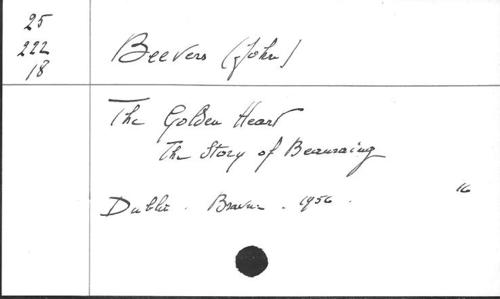 25
222
18
Beevers (John)
The Golden Heart
The Story of Beauraing
Dublin . Browne . 1956 .
16